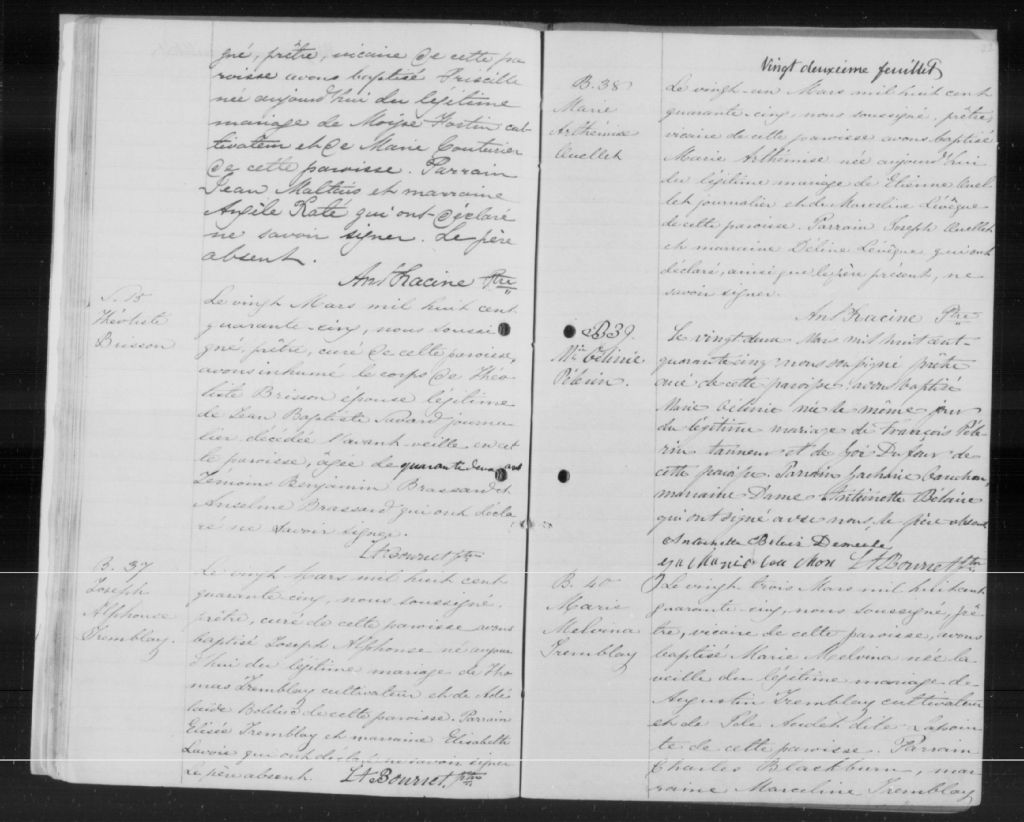 gné, prêtre, vicaire de cette pa
roisse avons baptisé Priscille
née aujourd'hui du légitime
mariage de Moïse Fortin cul-
tivateur et de Marie Couturier
de cette paroisse. Parrain
Jean Maltais et marraine
Angèle Raté qui ont déclaré
ne savoir signer. Le père
absent.
Ant Racine Ptre
S. 15
Théotiste
Brisson
Le vingt Mars mil huit cent
quarante-cinq, nous soussi
gné, prêtre, curé de cette paroisse,
avons inhumé le corps de Théo
tiste Brisson épouse légitime
de Jean Baptiste Savard journa
lier décédée l'avant veille en cet
te paroisse, âgée de quarante deux ans
Témoins Benjamin Brassard et
Anselme Brassard qui ont décla
ré ne savoir signer.
Lt Bourret Ptre
B. 37
Joseph
Alphonse
Tremblay.
Le vingt Mars mil huit cent
quarante cinq, nous soussigné,
prêtre, curé de cette paroisse avons
baptisé Joseph Alphonse né aujour
d'hui du légitime mariage de Tho
mas Tremblay cultivateur et de Adé
laïde Bolduc de cette paroisse. Parrain
Elisée Tremblay et marraine Elisabeth
Lavoie qui ont déclaré ne savoir signer
Le père absent.
Lt Bourret, Ptre
Vingt deuxième feuillet
B. 38
Marie
Arthémise
Ouellet
Le vingt-un Mars mil huit cent
quarante-cinq, nous soussigné, prêtre,
vicaire de cette paroisse avons baptisé
Marie Arthémise née aujourd'hui
du légitime mariage de Etienne Ouel
let journalier et de Marceline Lévêque
de cette paroisse. Parrain Joseph Ouellet
et marraine Déline Lévêque qui ont
déclaré, ainsi que le père présent, ne
savoir signer.
Ant Racine Ptre
B 39.
Mie Célinie
Pélerin.
Le vingt deux Mars mil huit cent
quarante cinq nous soussigné prêtre
curé de cette paroisse avons baptisé
Marie Célinie née le même jour
du légitime mariage de François Péle-
rin tanneur et de Dufour de
cette paroisse Parrain Zacharie Cauchon,
marraine Dame Antoinette Bélaire
qui ont signé avec nous, le père absent
Antoinette Belair
Cauchon Lt Bourret Ptre
B. 40
Marie
Melvina
Tremblay
Le vingt trois Mars mil huit cent
quarante-cinq, nous soussigné, prê-
tre, vicaire de cette paroisse, avons
baptisé Marie Melvina née la
veille du légitime mariage de
Augustin Tremblay cultivateur
et de Audet dite Lapoin
te de cette paroisse. Parrain
Charles Blackburn, mar
raine Marceline Tremblay